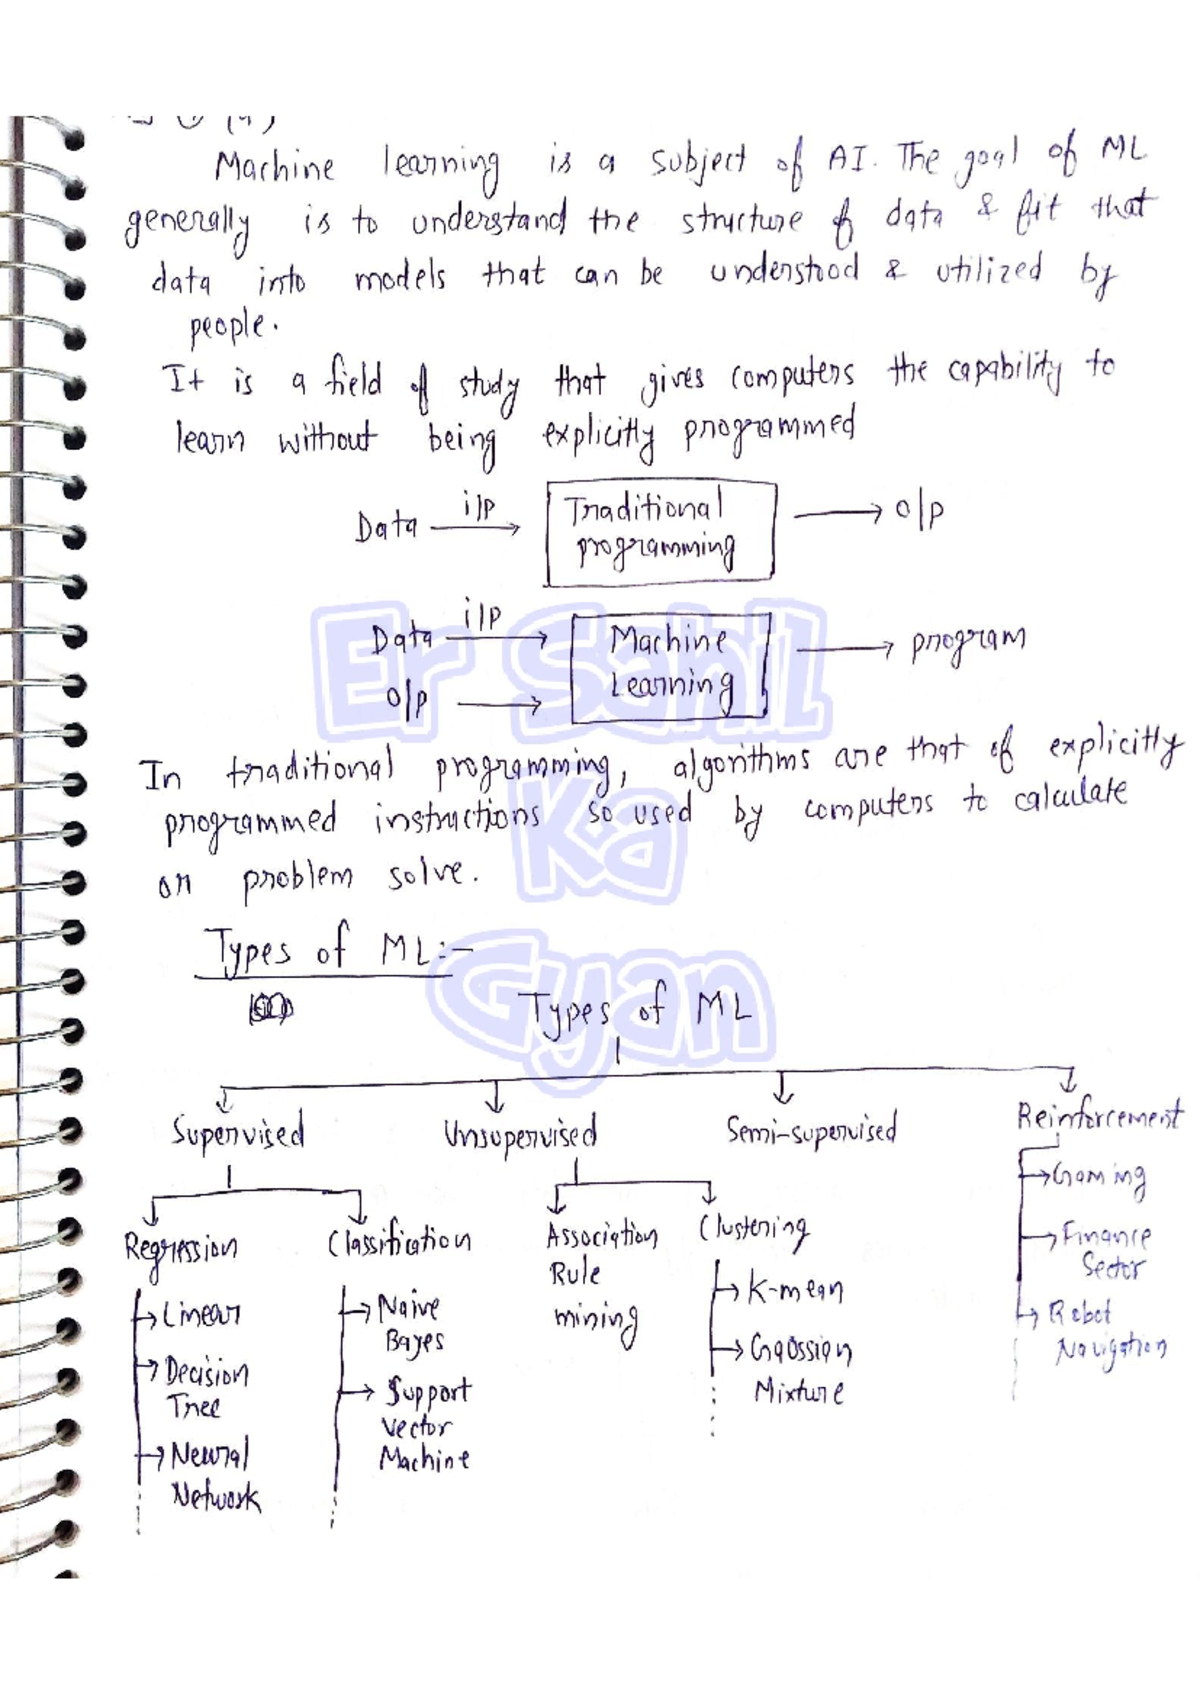 Machine learning is a subject of AI. The goal of ML
generally is to understand the structure of data & fit that
data into models that can be understood & utilized by
people.
It is a field of study that gives computers the capability to
learn without being explicitly programmed
Data i/p Traditional programming o/p
Data i/p Machine Learning program
o/p
In traditional programming, algorithms are that of explicitly
programmed instructions so used by computers to calculate
on problem solve.
Types of ML:-
Types of ML
Supervised Unsupervised Semi-supervised Reinforcement
Regression Classification Association Rule mining Clustering
Linear
Decision Tree
Neural Network
Naive Bayes
Support Vector Machine
K-mean
Gaossian Mixture
Gaming
Finance Sector
Robot Navigation
Er Sahil
Ka
Gyan